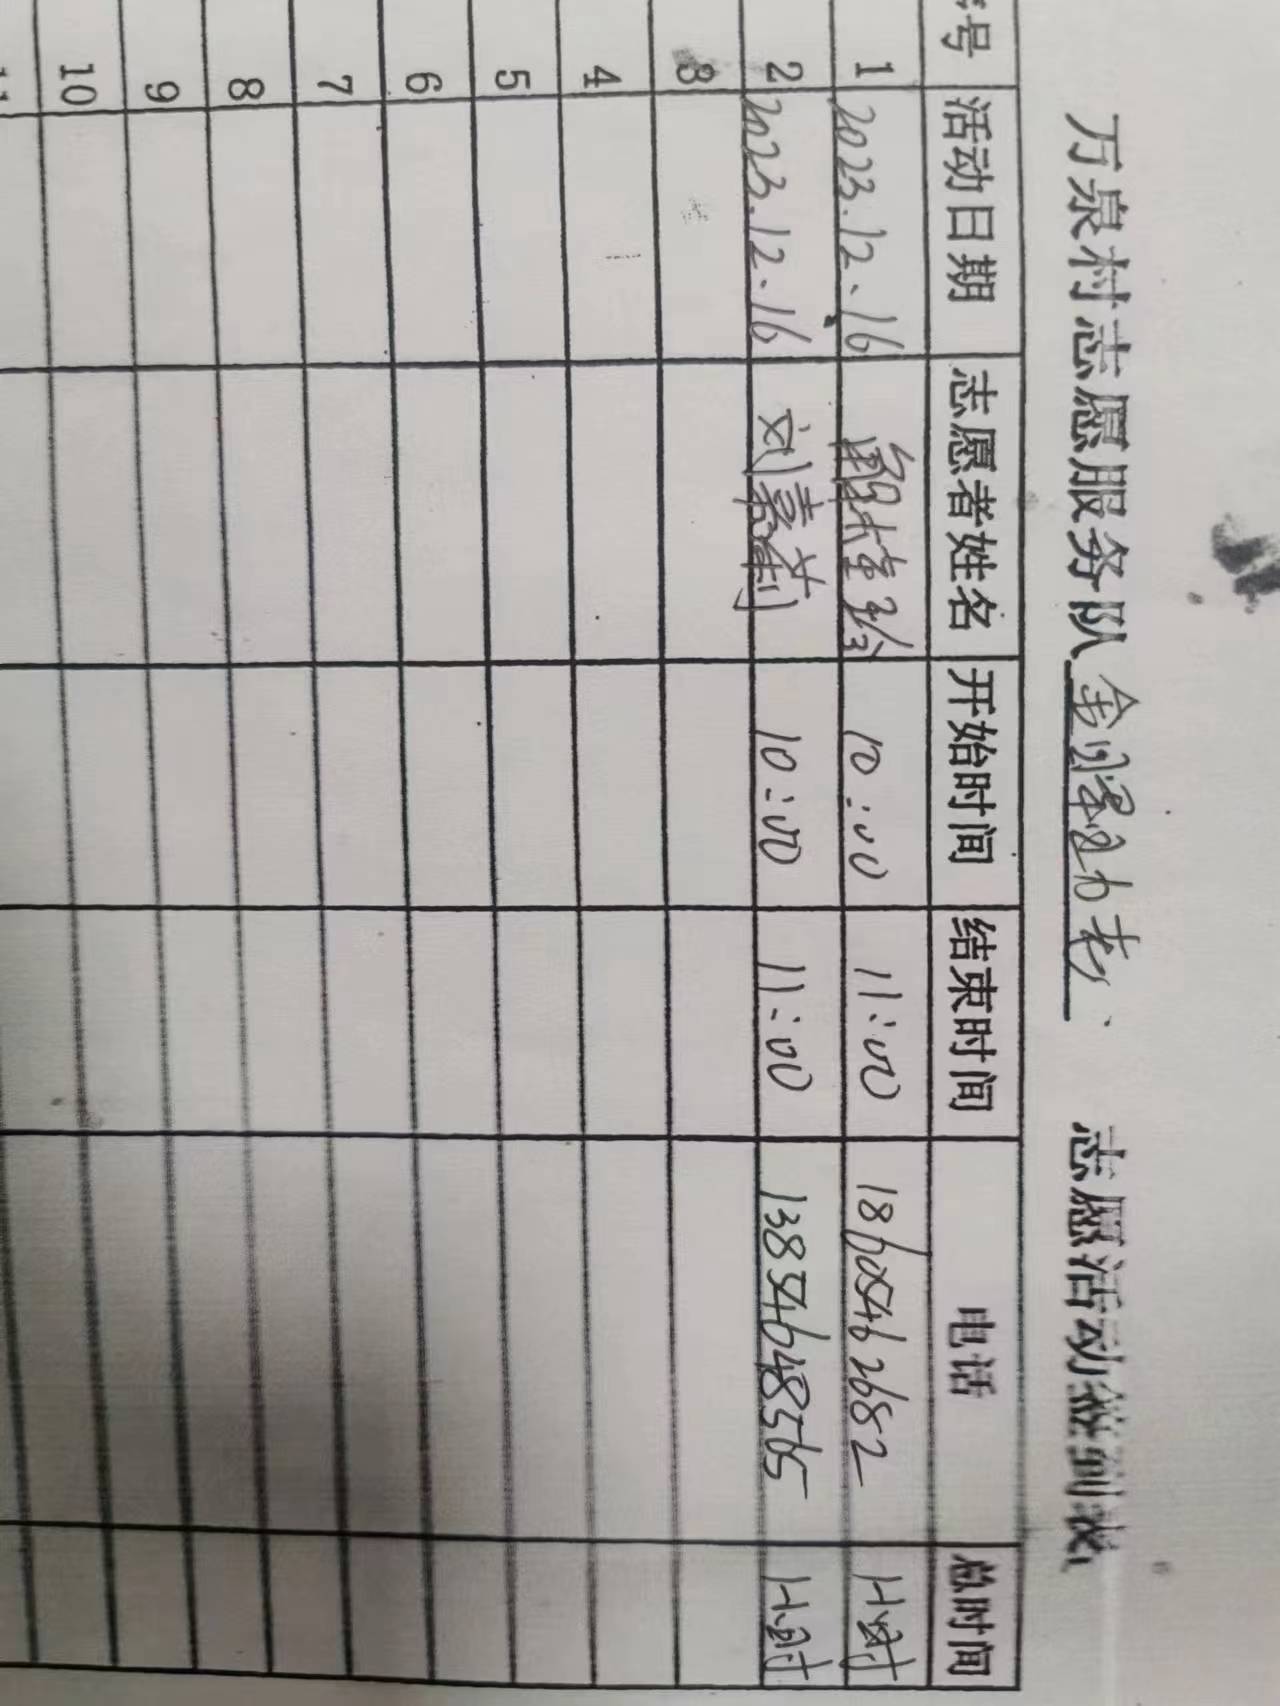 万泉村志愿服务队 志愿活动签到表
号 活动日期 志愿者姓名 开始时间 结束时间 电话 总时间
1 2023.12.16 10:00 11:00 18605462682 1小时
2 2023.12.16 刘嘉莉 10:00 11:00 13854648565 1小时
3
4
5
6
7
8
9
10
11